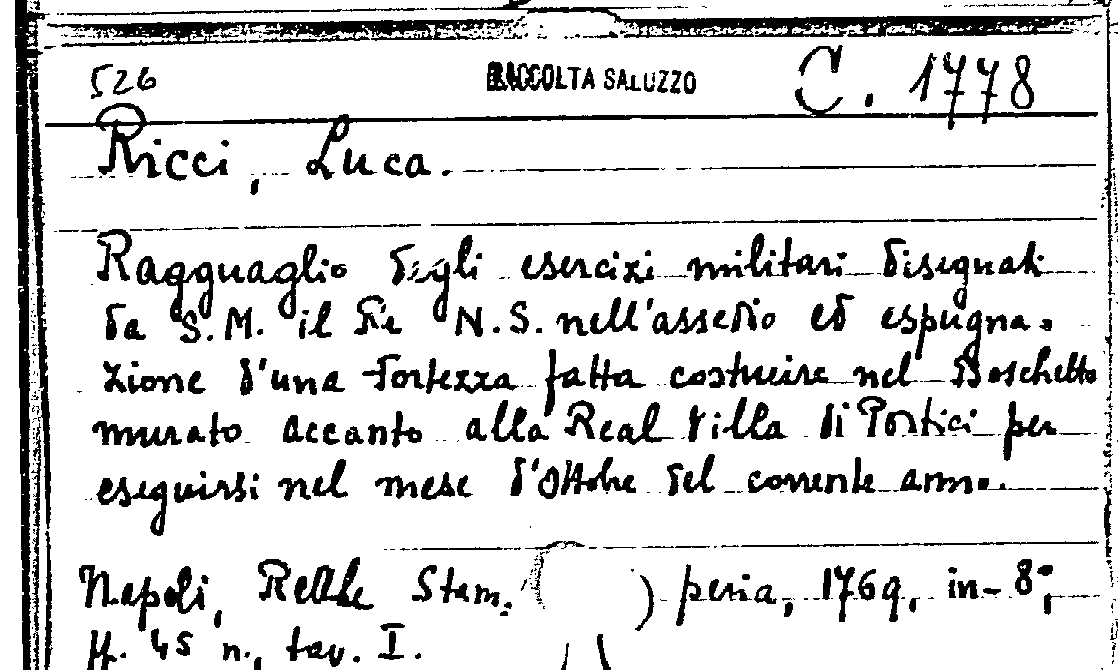 526 RACCOLTA SALUZZO C. 1778
Ricci, Luca.
Ragguaglio degli esercizi militari disegnati
da S.M. il Re N.S. nell'assedio ed espugna=
zione d'una Fortezza fatta costruire nel Boschetto
murato accanto alla Real Villa di Portici per
eseguirsi nel mese d'Ottobre del corrente anno.
Napoli, Reale Stam: peria, 1769, in-8°;
ff. 45 n., tav. I.